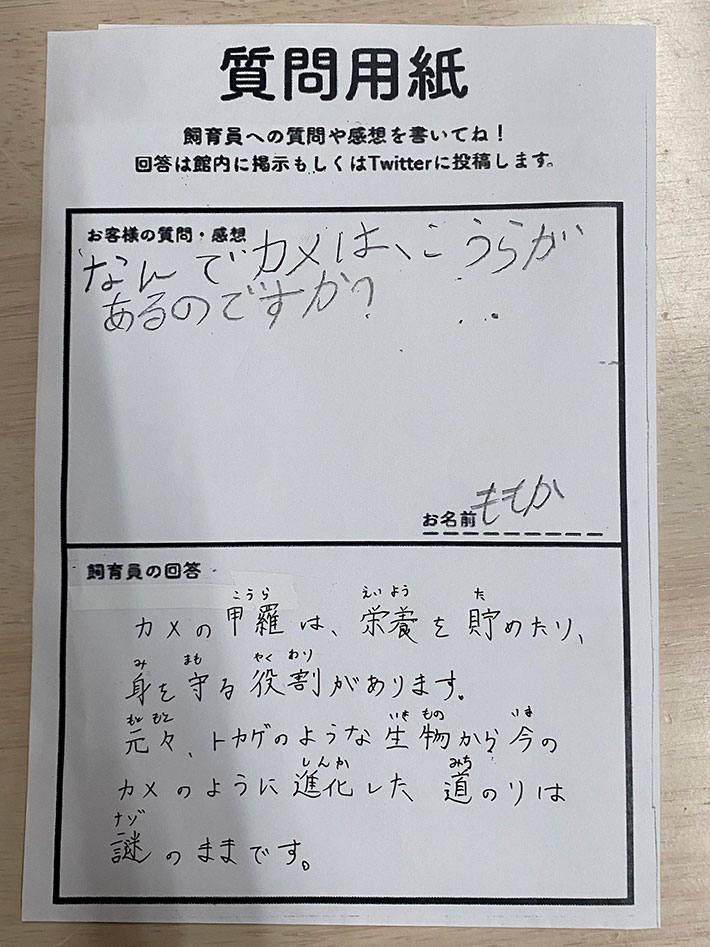 質問用紙
飼育員への質問や感想を書いてね！
回答は館内に掲示もしくはTwitterに投稿します。
お客様の質問・感想
なんでカメは、こうらが
あるのですか？
お名前 ももか
飼育員の回答
こうら えいよう た
カメの甲羅は、栄養を貯めたり、
み まも やく わり
身を守る役割があります。
もと もと いき もの いま
元々、トカゲのような生物から今の
しんか みち
カメのように進化した道のりは
ナゾ
謎のままです。